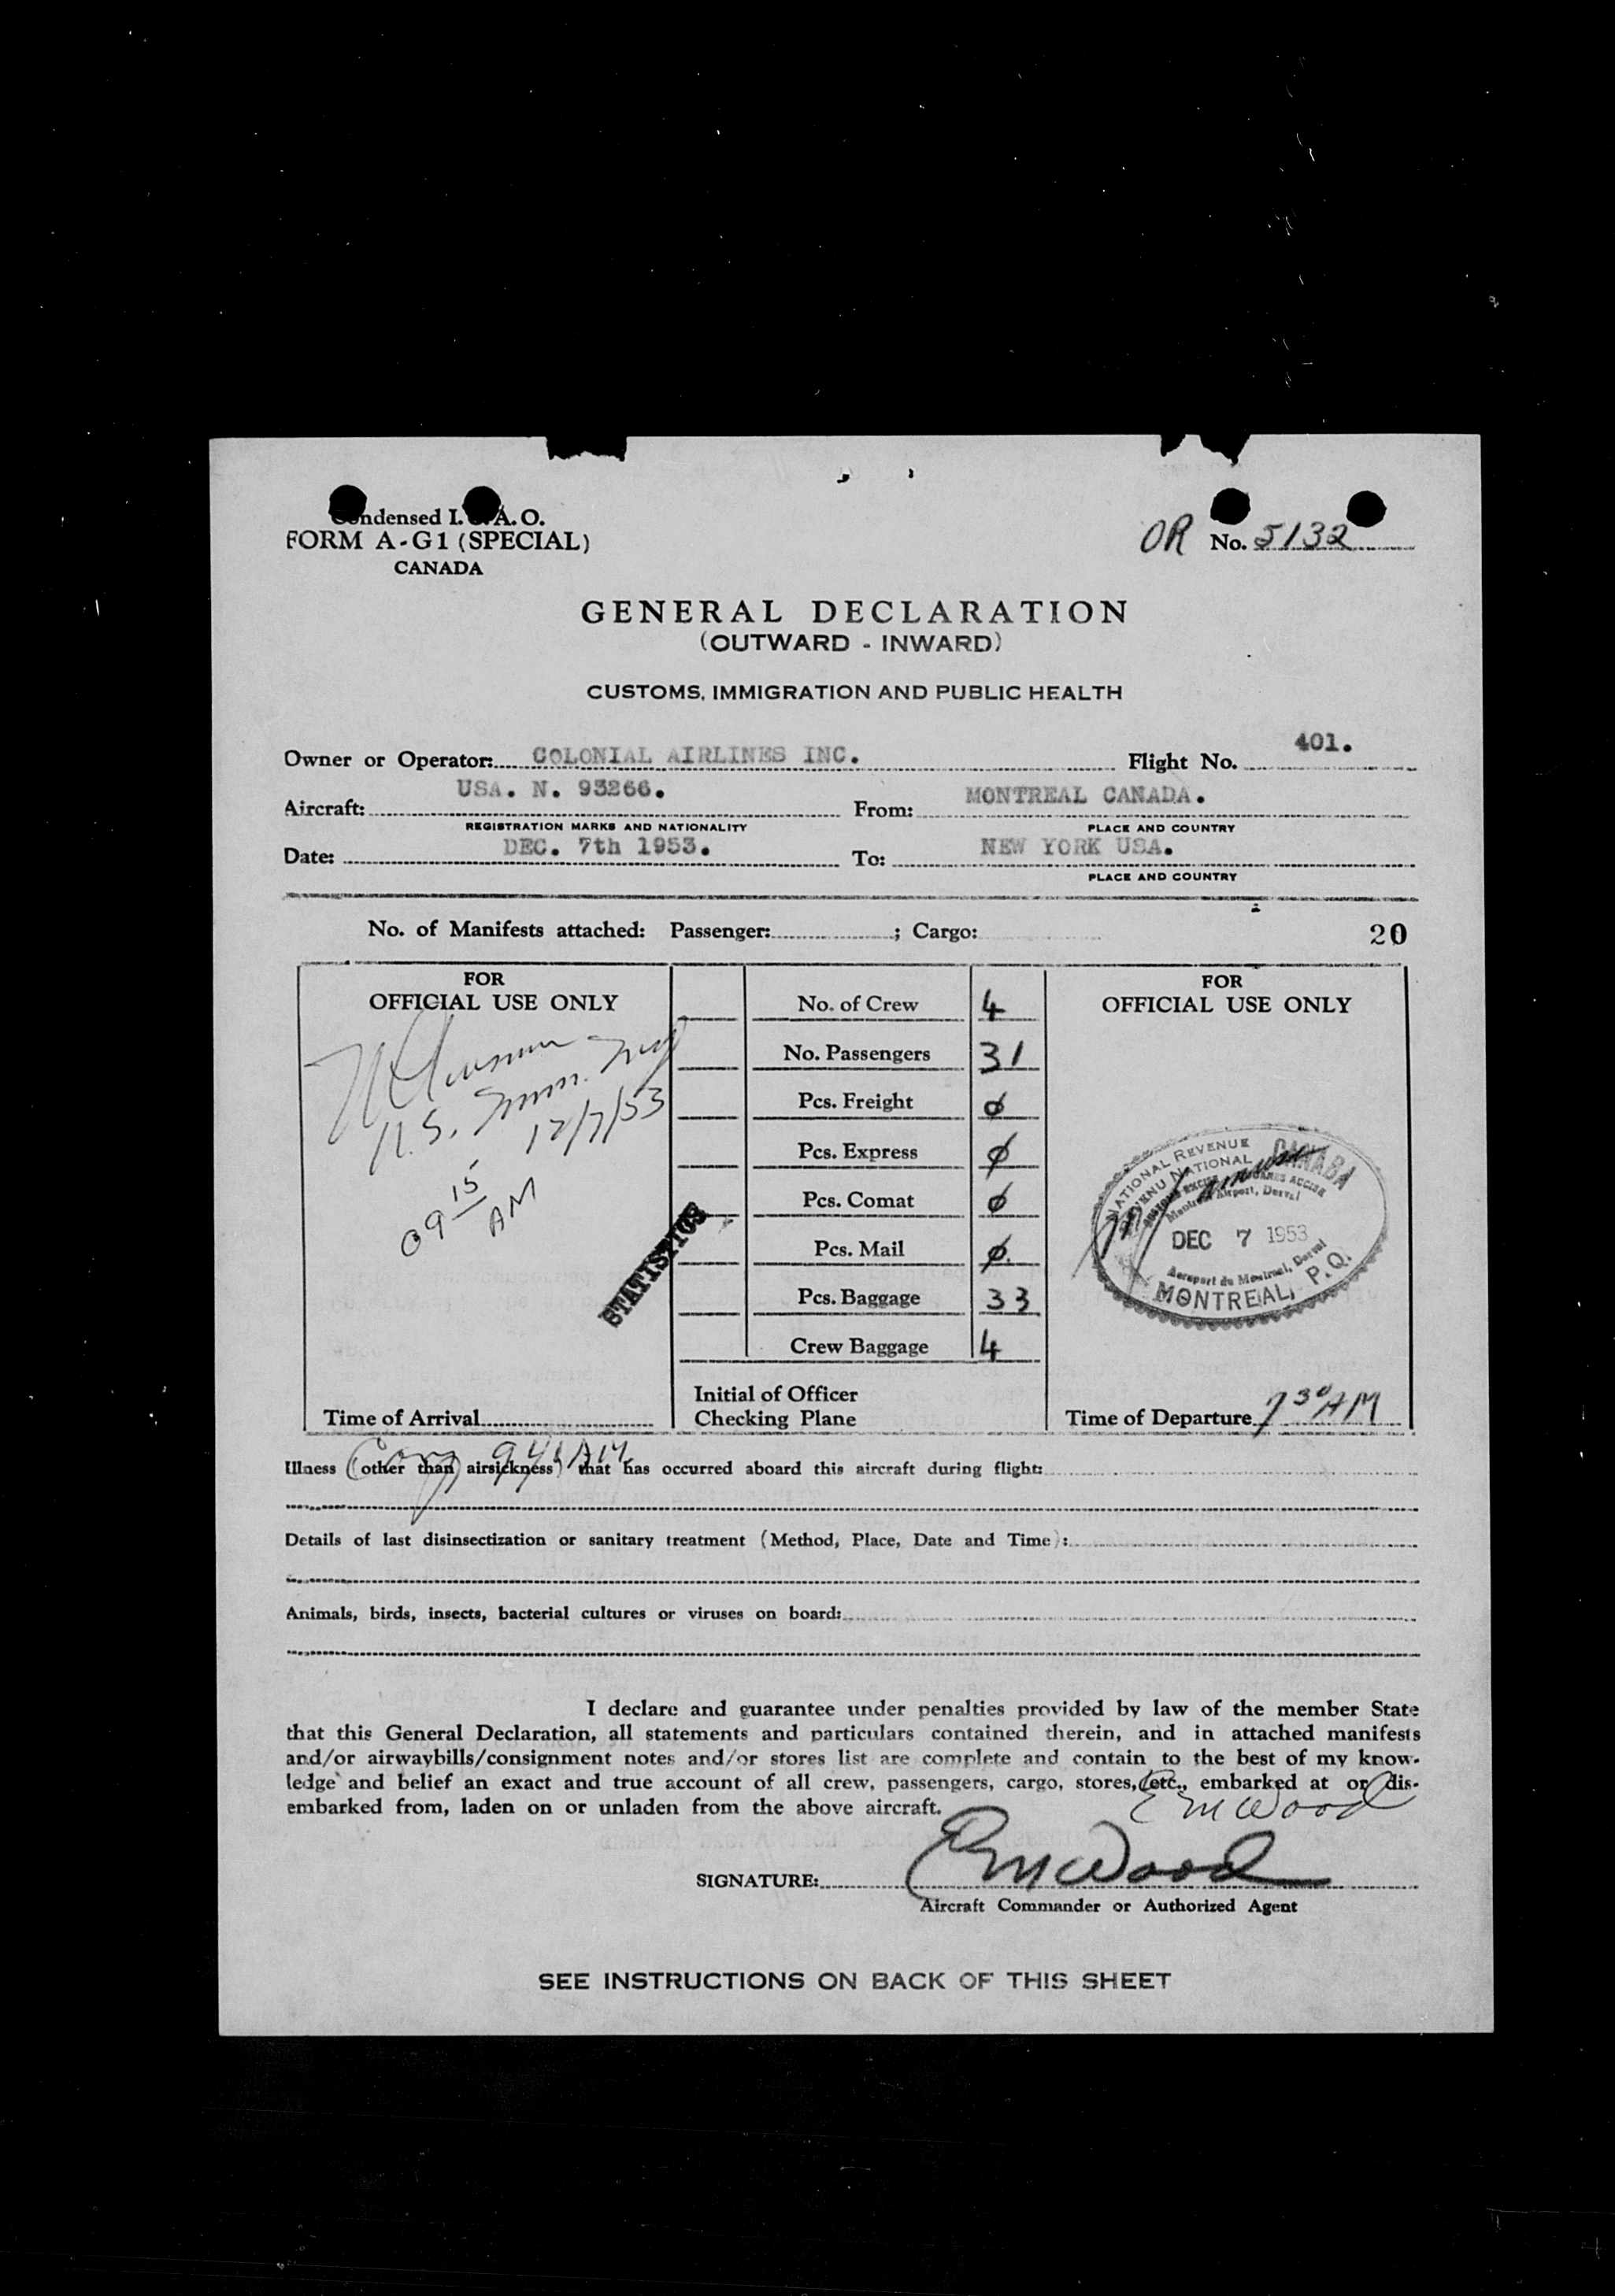 Condensed I.C.A.O.
FORM A-G1 (SPECIAL)
CANADA
OR No. 5132
GENERAL DECLARATION
(OUTWARD - INWARD)
CUSTOMS, IMMIGRATION AND PUBLIC HEALTH
Owner or Operator: COLONIAL AIRLINES INC. Flight No. 401.
Aircraft: USA. N. 93266. From: MONTREAL CANADA.
REGISTRATION MARKS AND NATIONALITY PLACE AND COUNTRY
Date: DEC. 7th 1953. To: NEW YORK USA.
PLACE AND COUNTRY
No. of Manifests attached: Passenger: ; Cargo: 20
FOR
OFFICIAL USE ONLY
U.S. Imm. Insp
12/7/53
09 15
AM
STATISTICS
Time of Arrival
No. of Crew 4
No. Passengers 31
Pcs. Freight ø
Pcs. Express ø
Pcs. Comat ø
Pcs. Mail ø
Pcs. Baggage 33
Crew Baggage 4
Initial of Officer
Checking Plane
FOR
OFFICIAL USE ONLY
NATIONAL REVENUE CANADA
REVENU NATIONAL
Montreal Airport, Dorval
DEC 7 1953
Aeroport du Montreal, Dorval
MONTREAL, P.Q.
Time of Departure 7 30 AM
Illness (other than airsickness) that has occurred aboard this aircraft during flight:
Details of last disinsectization or sanitary treatment (Method, Place, Date and Time):
Animals, birds, insects, bacterial cultures or viruses on board:
I declare and guarantee under penalties provided by law of the member State
that this General Declaration, all statements and particulars contained therein, and in attached manifests
and/or airwaybills/consignment notes and/or stores list are complete and contain to the best of my know-
ledge and belief an exact and true account of all crew, passengers, cargo, stores, etc., embarked at or dis-
embarked from, laden on or unladen from the above aircraft.
EMWood
SIGNATURE: EMWood
Aircraft Commander or Authorized Agent
SEE INSTRUCTIONS ON BACK OF THIS SHEET